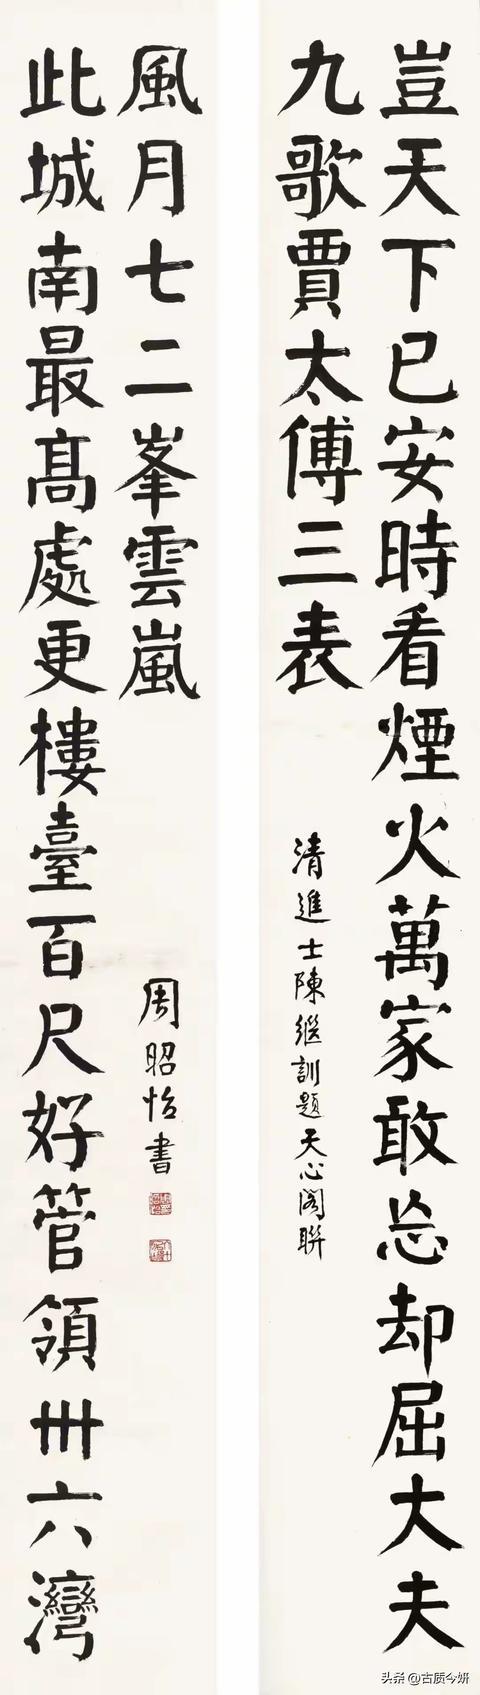 豈天下已安時看煙火萬家敢忘却屈大夫
九歌賈太傅三表
清進士陳繼訓題天心閣聯
此城南最高處更樓臺百尺好管領卅六灣
風月七二峯雲嵐
周昭怡書
头条 @古质今妍